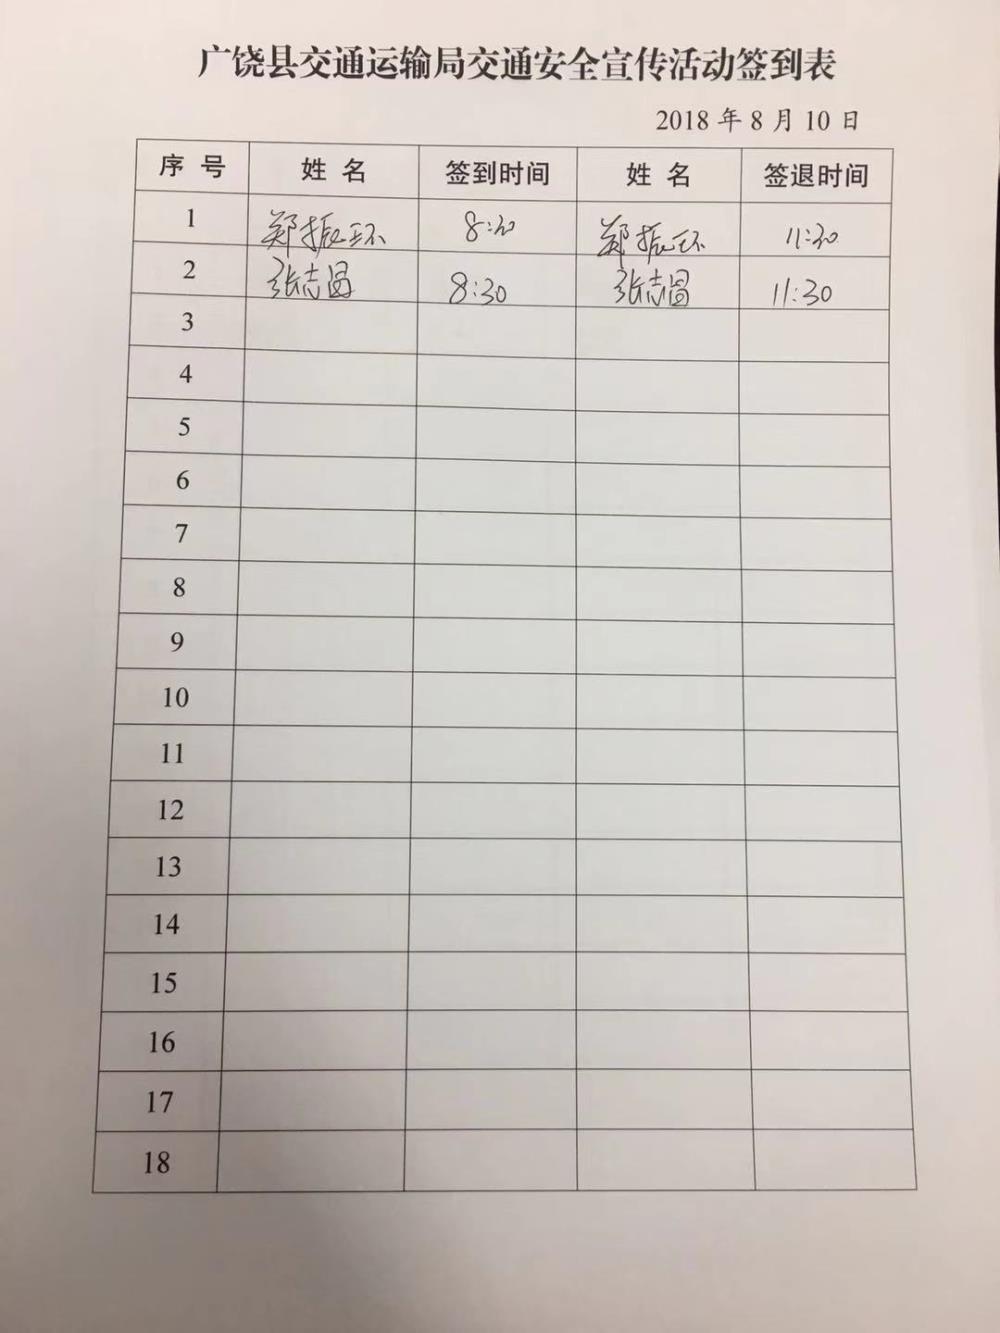 广饶县交通运输局交通安全宣传活动签到表
2018 年 8 月 10 日
序 号 姓 名 签到时间 姓 名 签退时间
1 郑振环 8:30 郑振环 11:30
2 张志国 8:30 张志国 11:30
3
4
5
6
7
8
9
10
11
12
13
14
15
16
17
18